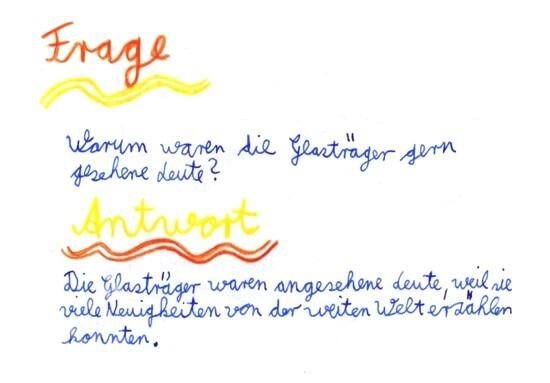 Frage
Warum waren die Glasträger gern
gesehene Leute?
Antwort
Die Glasträger waren angesehene Leute, weil sie
viele Neuigkeiten von der weiten Welt erzählen
konnten.